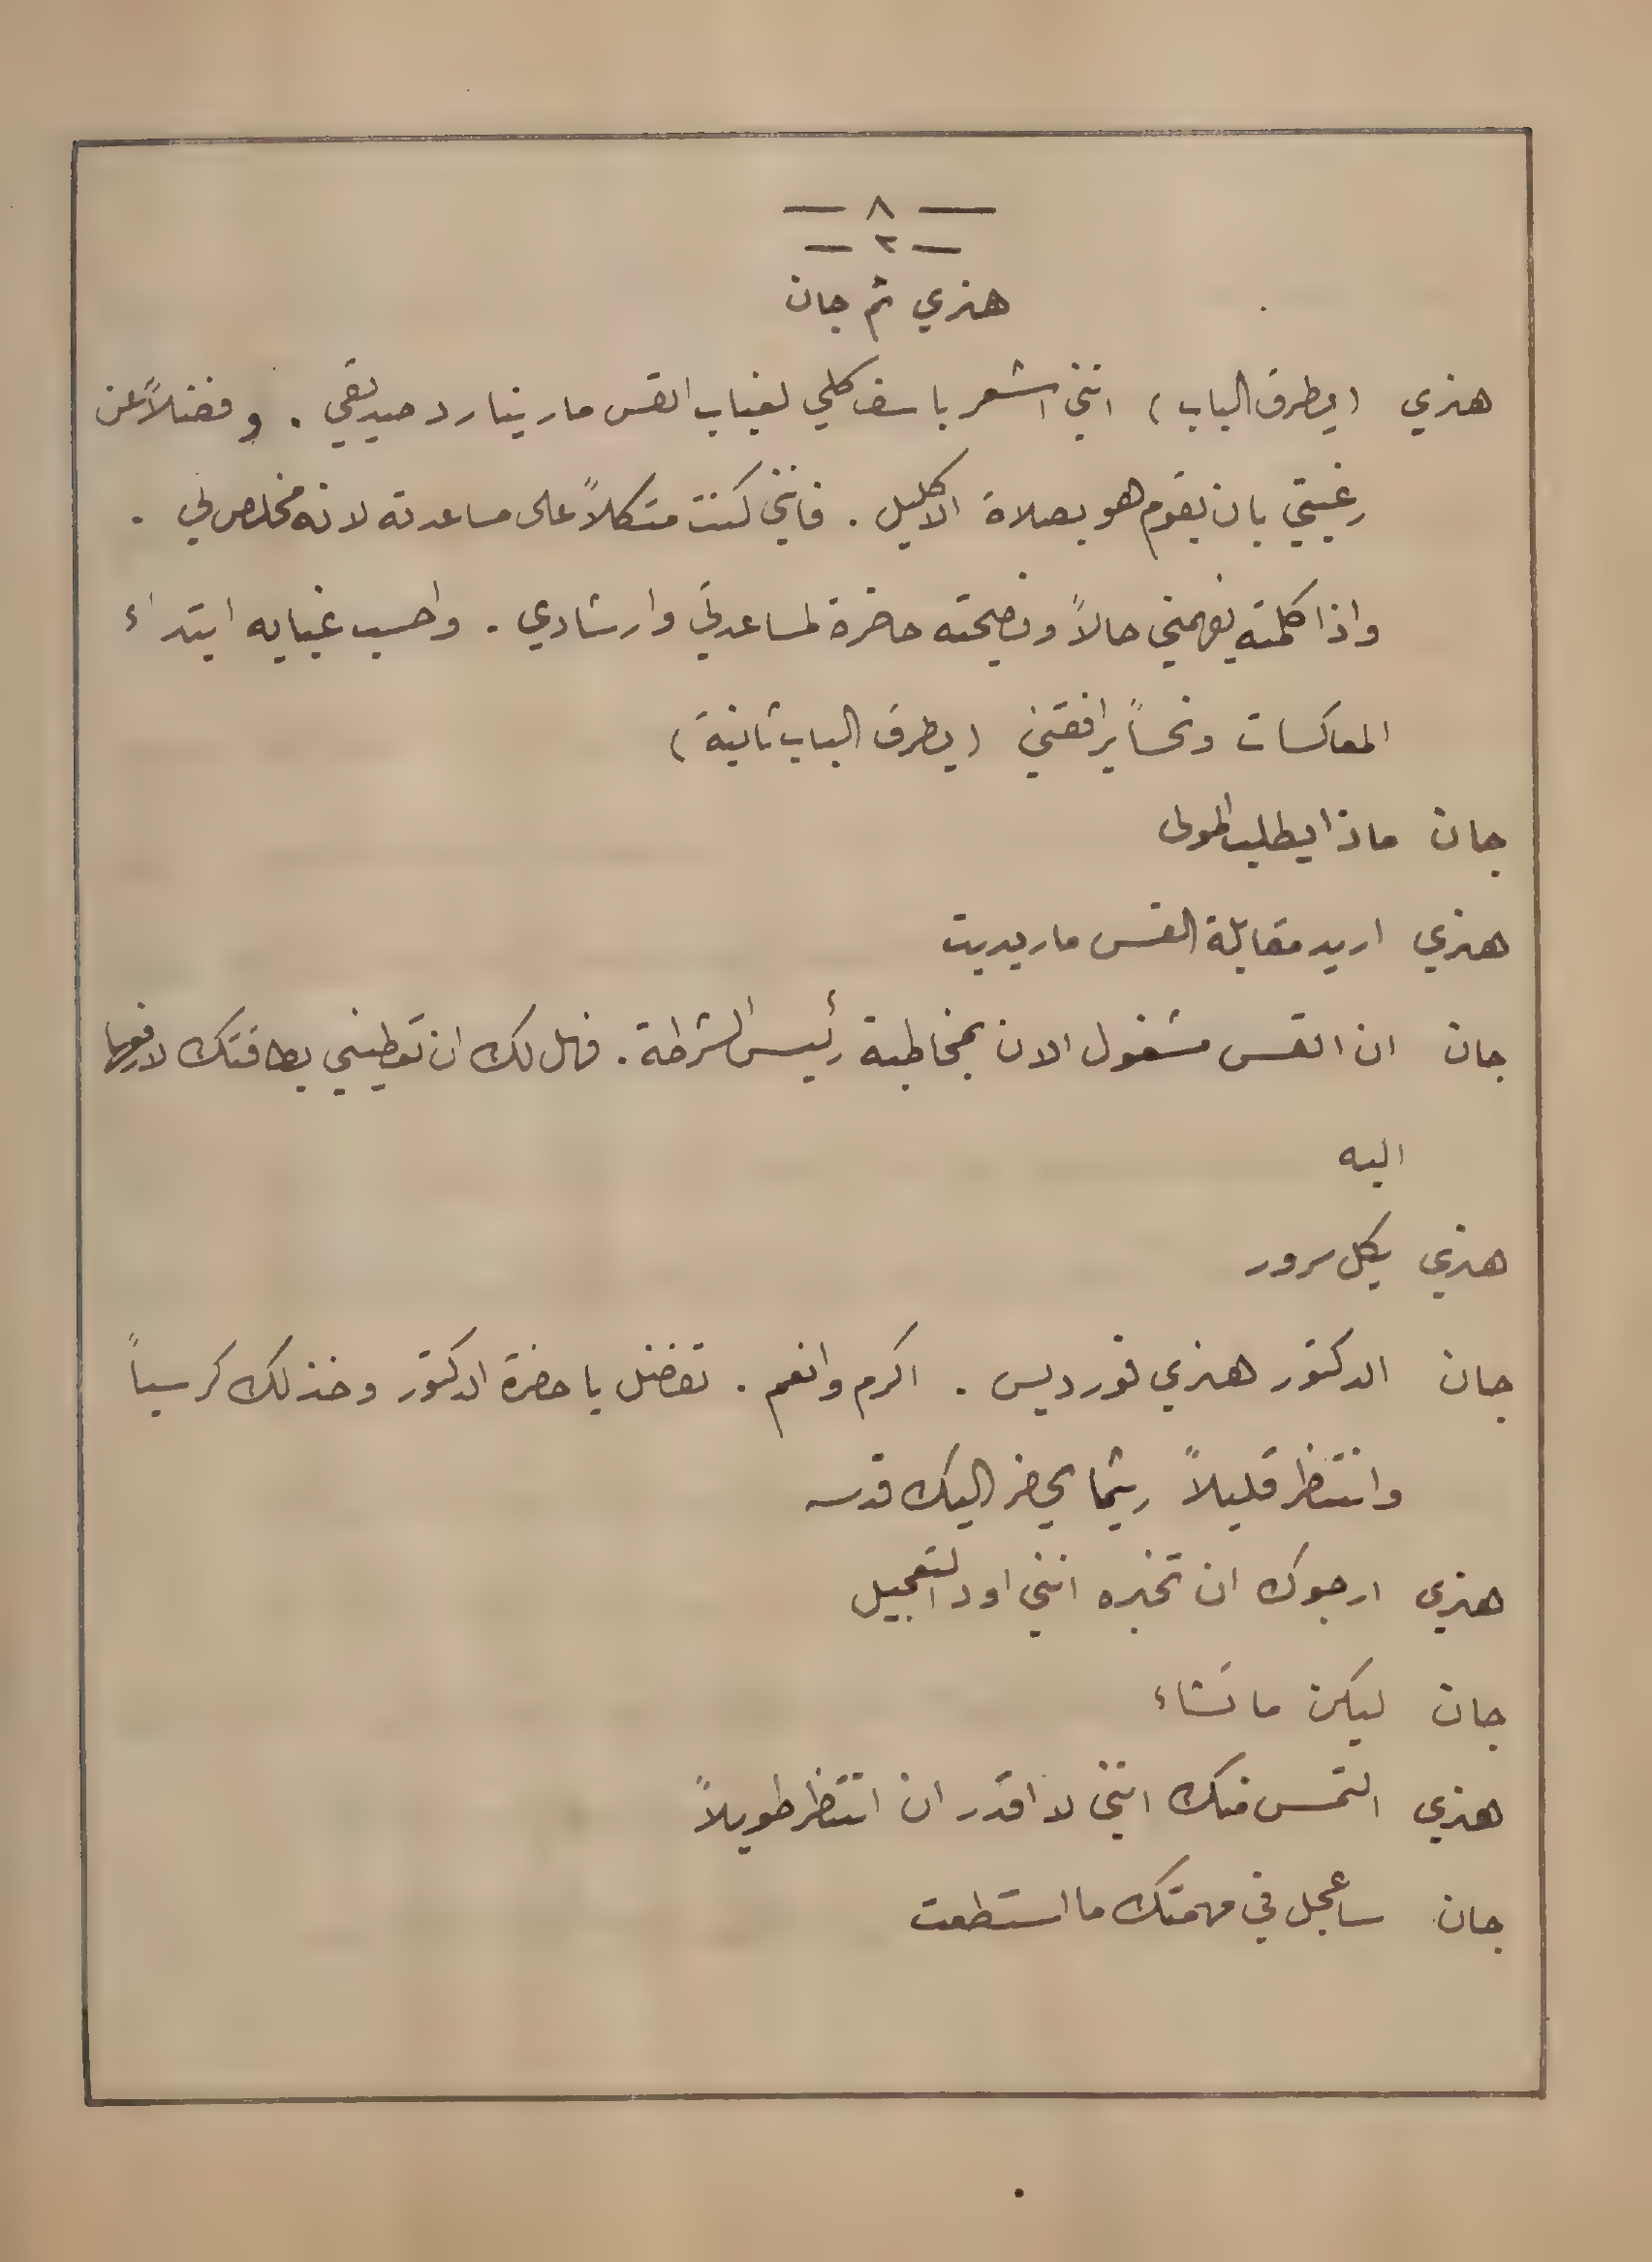 — ٨ —
— ٢ —
هنري ثم جان
هنري (يطرق الباب) انني اشعر باسف كلي لغياب القس مارينارد صديقي . وفضلاً عن
رغبتي بان يقوم هو بصلاة الاكليل . فانني كنت متكلاً على مساعدته لانه مخلص لي .
واذا كلمته يفهمني حالاً ونصيحته حاضرة لمساعدتي وارشادي . واحسب غيابه ابتداء
المعاكسات ونحساً يرافقني (يطرق الباب ثانية)
جان ماذا يطلب المولى
هنري اريد مقابلة القس ماريديت
جان ان القس مشغول الان بمخاطبة رئيس الشرطة . فهل لك ان تعطيني بطاقتك لارفعها
اليه
هنري بكل سرور
جان الدكتور هنري فورديس . اكرم وانعم . تفضل يا حضرة الدكتور وخذ لك كرسياً
وانتظر قليلاً ريثما يحضر اليك قدسه
هنري ارجوك ان تخبره انني اود التعجيل
جان ليكن ما تشاء
هنري التمس منك انني لا اقدر ان انتظر طويلاً
جان ساعجل في مهمتك ما استطعت